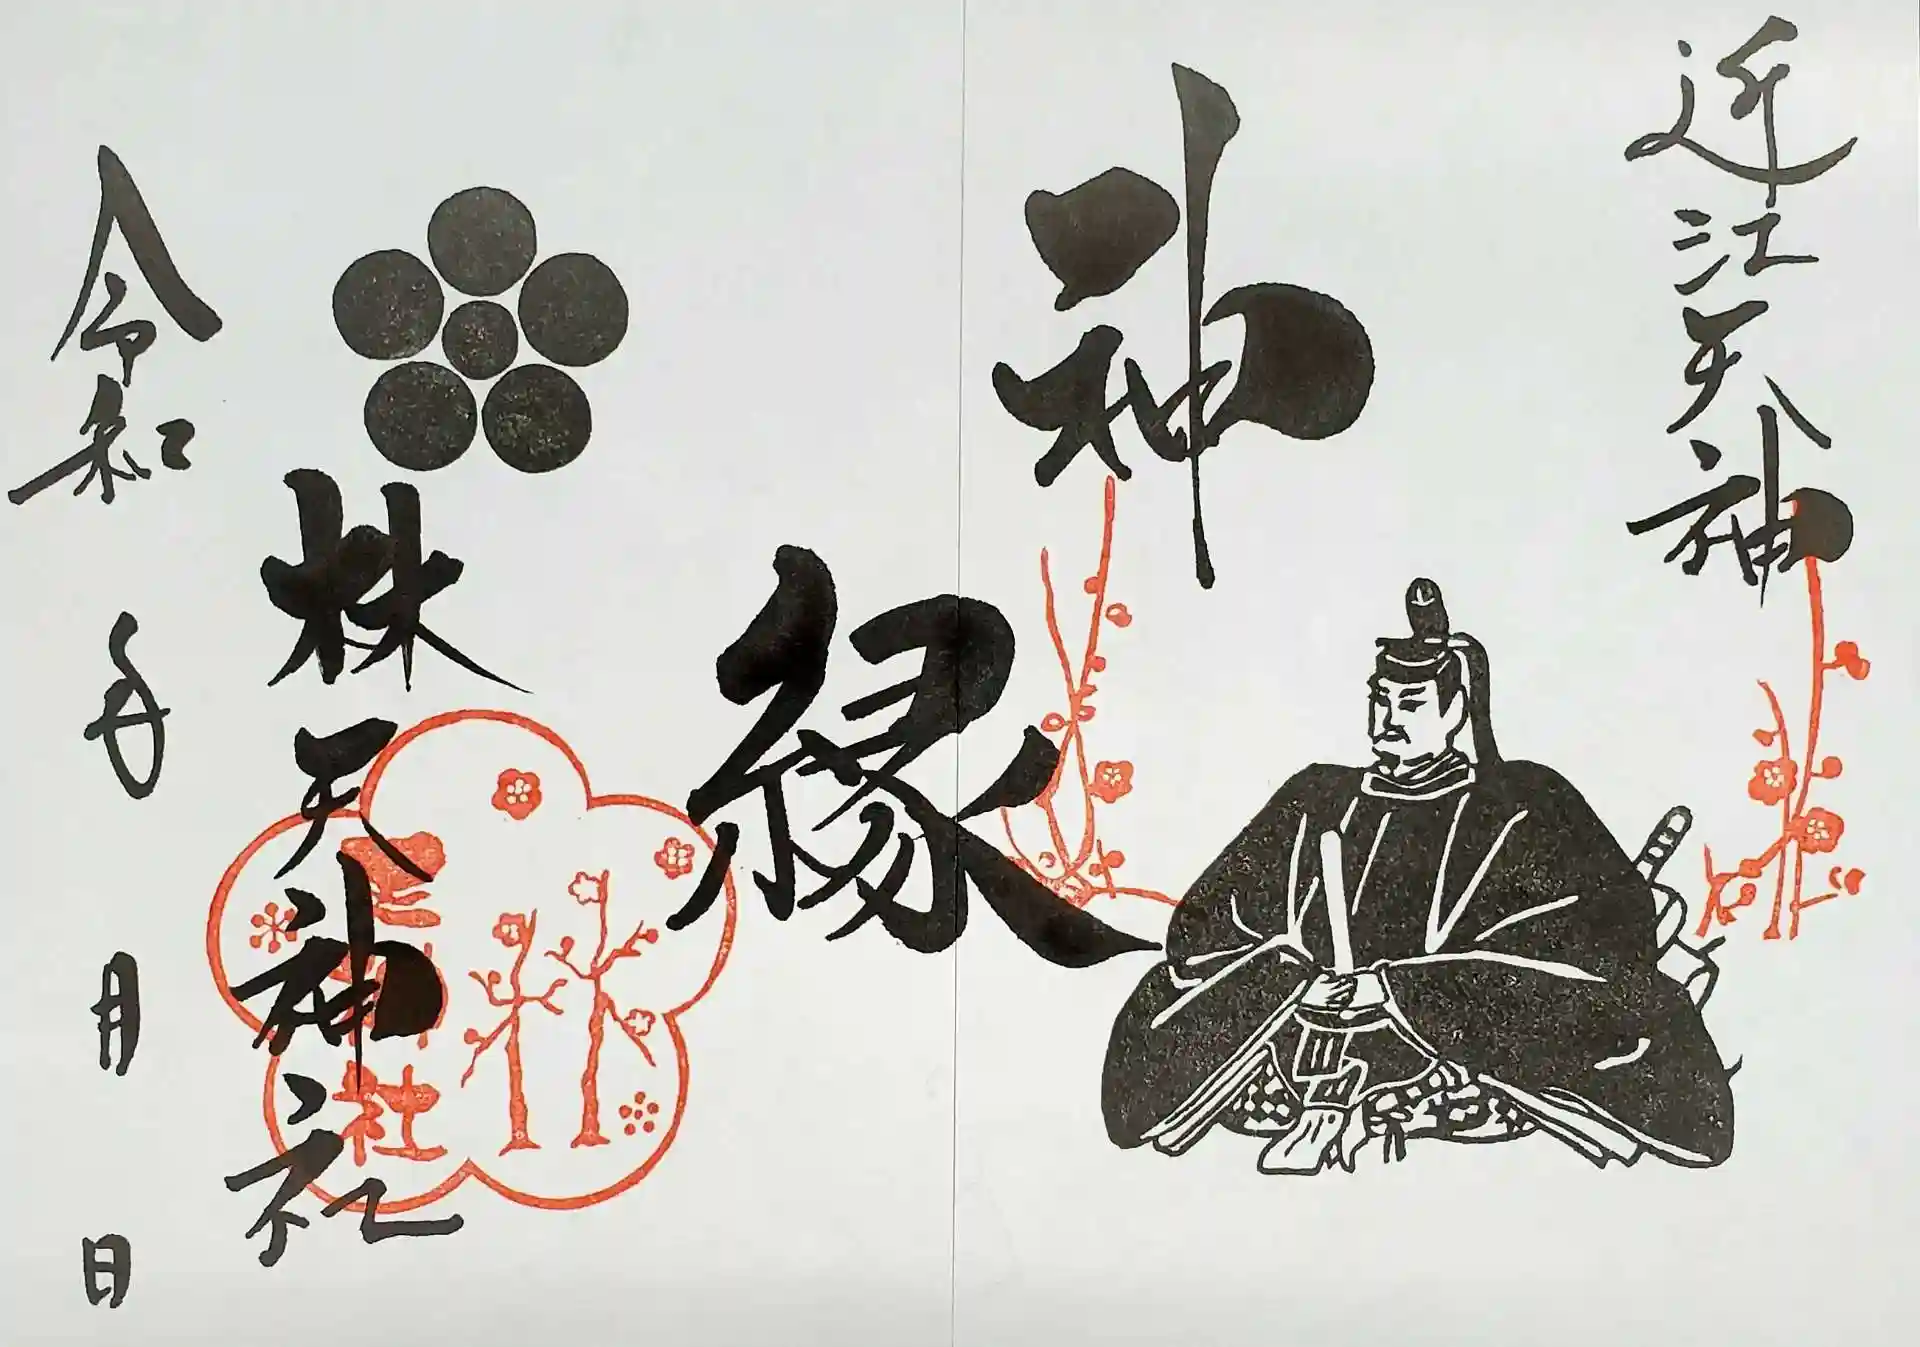 近江天神
神縁
林天神社
令和 年 月 日